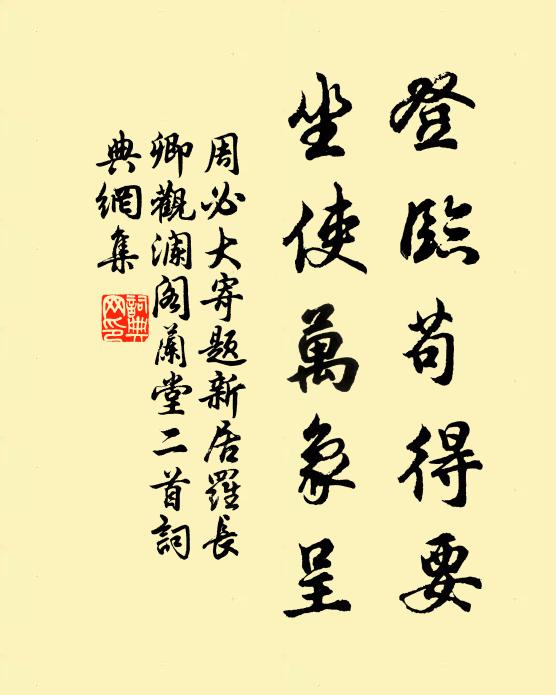 登臨苟得要
坐使萬象呈
周必大寄题新居羅長
卿觀澜阁蘭堂二首詞
典網集
詞典
网印